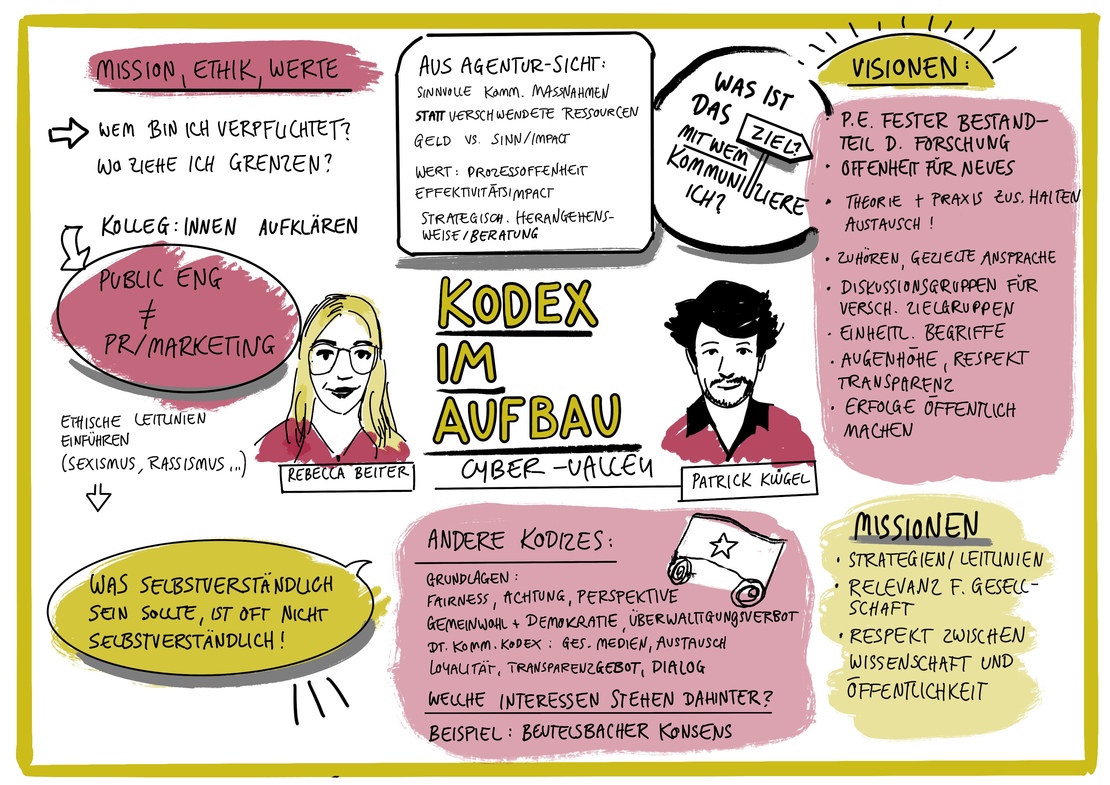 MISSION, ETHIK, WERTE
WEM BIN ICH VERPFLICHTET?
WO ZIEHE ICH GRENZEN?
KOLLEG:INNEN AUFKLÄREN
PUBLIC ENG
≠
PR/MARKETING
ETHISCHE LEITLINIEN
EINFÜHREN
(SEXISMUS, RASSISMUS...)
WAS SELBSTVERSTÄNDLICH
SEIN SOLLTE, IST OFT NICHT
SELBSTVERSTÄNDLICH!
AUS AGENTUR-SICHT:
SINNVOLLE KOMM. MASSNAHMEN
STATT VERSCHWENDETE RESSOURCEN
GELD VS. SINN/IMPACT
WERT: PROZESSOFFENHEIT
EFFEKTIVITÄTSIMPACT
STRATEGISCH. HERANGEHENS-
WEISE/BERATUNG
WAS IST
DAS ZIEL?
MIT WEM
KOMMUNIZIERE
ICH?
KODEX
IM
AUFBAU
CYBER-VALLEY
REBECCA BEITER
PATRICK KLÜGEL
ANDERE KODIZES:
GRUNDLAGEN:
FAIRNESS, ACHTUNG, PERSPEKTIVE
GEMEINWOHL + DEMOKRATIE, ÜBERWÄLTIGUNGSVERBOT
DT. KOMM. KODEX: GES. MEDIEN, AUSTAUSCH
LOYALITÄT, TRANSPARENZGEBOT, DIALOG
WELCHE INTERESSEN STEHEN DAHINTER?
BEISPIEL: BEUTELSBACHER KONSENS
VISIONEN:
P.E. FESTER BESTAND-
TEIL D. FORSCHUNG
• OFFENHEIT FÜR NEUES
• THEORIE + PRAXIS ZUS. HALTEN
AUSTAUSCH!
• ZUHÖREN, GEZIELTE ANSPRACHE
• DISKUSSIONSGRUPPEN FÜR
VERSCH. ZIELGRUPPEN
• EINHEITL. BEGRIFFE
• AUGENHÖHE, RESPEKT
TRANSPARENZ
• ERFOLGE ÖFFENTLICH
MACHEN
MISSIONEN
• STRATEGIEN/LEITLINIEN
• RELEVANZ F. GESELL-
SCHAFT
• RESPEKT ZWISCHEN
WISSENSCHAFT UND
ÖFFENTLICHKEIT